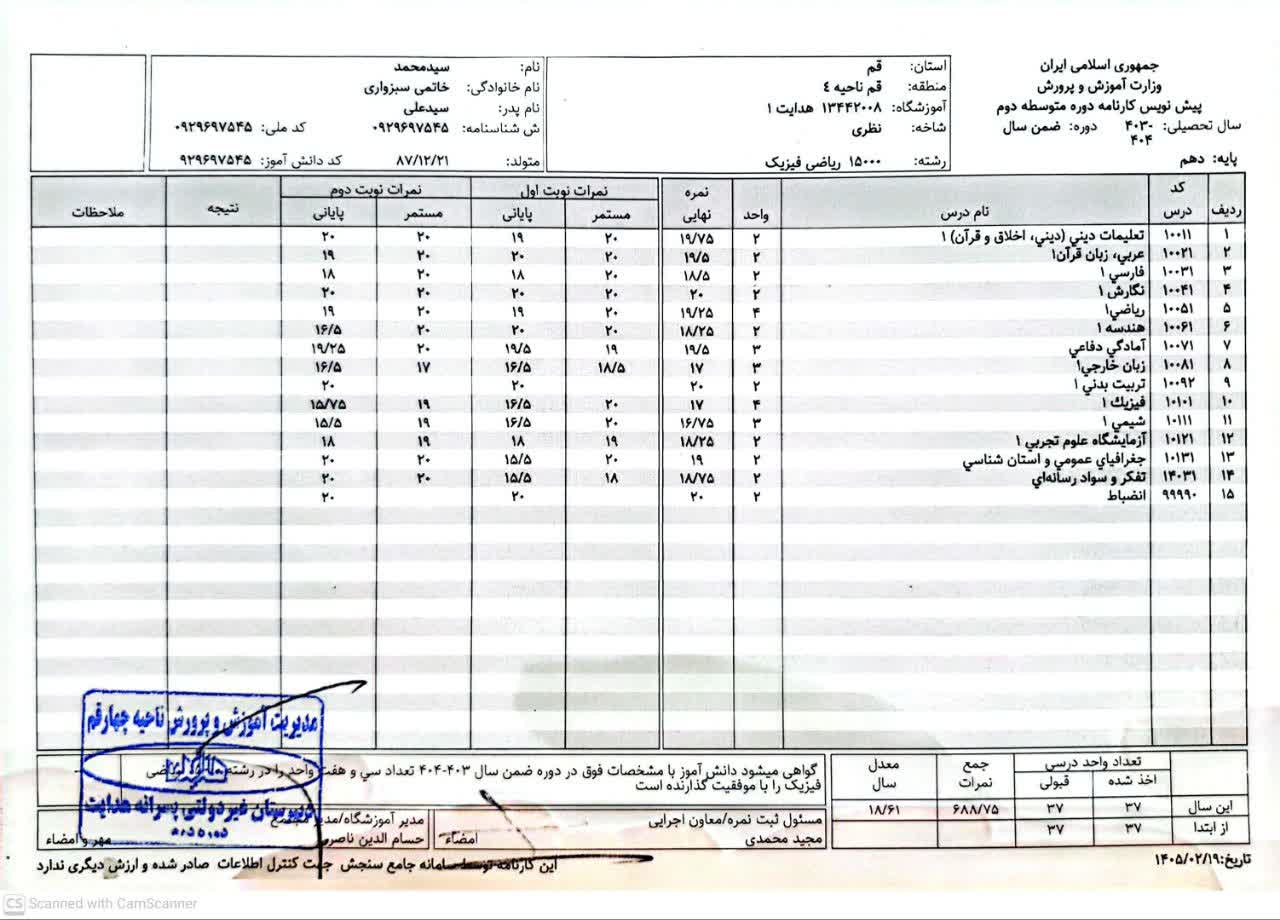 جمهوری اسلامی ایران
وزارت آموزش و پرورش
پیش نویس کارنامه دوره متوسطه دوم
سال تحصیلی: ۴۰۳-۴۰۴ دوره: ضمن سال
پایه: دهم
استان: قم
منطقه: قم ناحیه ٤
آموزشگاه: ۱۳۴۴۲۰۰۸ هدایت ۱
شاخه: نظری
رشته: ۱۵۰۰۰ ریاضی فیزیک
نام: سیدمحمد
نام خانوادگی: خاتمی سبزواری
نام پدر: سیدعلی
ش شناسنامه: ۰۹۲۹۶۹۷۵۴۵ کد ملی: ۰۹۲۹۶۹۷۵۴۵
متولد: ۸۷/۱۲/۲۱ کد دانش آموز: ۹۲۹۶۹۷۵۴۵
ردیف کد درس نام درس واحد نمره نهایی نمرات نوبت اول نمرات نوبت دوم نتیجه ملاحظات
مستمر پایانی مستمر پایانی
۱ ۱۰۰۱۱ تعلیمات دیني (دیني، اخلاق و قرآن) ۱ ۲ ۱۹/۷۵ ۲۰ ۱۹ ۲۰ ۲۰
۲ ۱۰۰۲۱ عربي، زبان قرآن۱ ۲ ۱۹/۵ ۲۰ ۲۰ ۲۰ ۱۹
۳ ۱۰۰۳۱ فارسي ۱ ۲ ۱۸/۵ ۲۰ ۱۸ ۲۰ ۱۸
۴ ۱۰۰۴۱ نگارش ۱ ۲ ۲۰ ۲۰ ۲۰ ۲۰ ۲۰
۵ ۱۰۰۵۱ ریاضي۱ ۴ ۱۹/۲۵ ۲۰ ۱۹ ۲۰ ۱۹
۶ ۱۰۰۶۱ هندسه ۱ ۲ ۱۸/۲۵ ۲۰ ۲۰ ۲۰ ۱۶/۵
۷ ۱۰۰۷۱ آمادگي دفاعي ۳ ۱۹/۵ ۱۹ ۱۹/۵ ۲۰ ۱۹/۲۵
۸ ۱۰۰۸۱ زبان خارجي۱ ۳ ۱۷ ۱۸/۵ ۱۶/۵ ۱۷ ۱۶/۵
۹ ۱۰۰۹۲ تربیت بدني ۱ ۲ ۲۰ ۲۰ ۲۰
۱۰ ۱۰۱۰۱ فیزیك ۱ ۴ ۱۷ ۲۰ ۱۶/۵ ۱۹ ۱۵/۷۵
۱۱ ۱۰۱۱۱ شیمي ۱ ۳ ۱۶/۷۵ ۲۰ ۱۶/۵ ۱۹ ۱۵/۵
۱۲ ۱۰۱۲۱ آزمایشگاه علوم تجربي ۱ ۲ ۱۸/۲۵ ۱۹ ۱۸ ۱۹ ۱۸
۱۳ ۱۰۱۳۱ جغرافیاي عمومي و استان شناسي ۲ ۱۹ ۲۰ ۱۵/۵ ۲۰ ۲۰
۱۴ ۱۴۰۳۱ تفکر و سواد رسانه‌اي ۲ ۱۸/۷۵ ۱۸ ۱۵/۵ ۲۰ ۲۰
۱۵ ۹۹۹۹۰ انضباط ۲ ۲۰ ۲۰ ۲۰
تعداد واحد درسی جمع نمرات معدل سال
اخذ شده قبولی
این سال ۳۷ ۳۷ ۶۸۸/۷۵ ۱۸/۶۱
از ابتدا ۳۷ ۳۷
گواهی میشود دانش آموز با مشخصات فوق در دوره ضمن سال ۴۰۳-۴۰۴ تعداد سي و هفت واحد را در رشته
فیزیک را با موفقیت گذارنده است
مسئول ثبت نمره/معاون اجرایی
مجید محمدی امضاء
مدیر آموزشگاه/مدیر مجتمع
حسام الدین ناصری مهر و امضاء
مدیریت آموزش و پرورش ناحیه چهار قم
دبیرستان غیردولتی پسرانه هدایت
دوره دوم
تاریخ:۱۴۰۵/۰۲/۱۹
این کارنامه توسط سامانه جامع سنجش جهت کنترل اطلاعات صادر شده و ارزش دیگری ندارد
CS Scanned with CamScanner